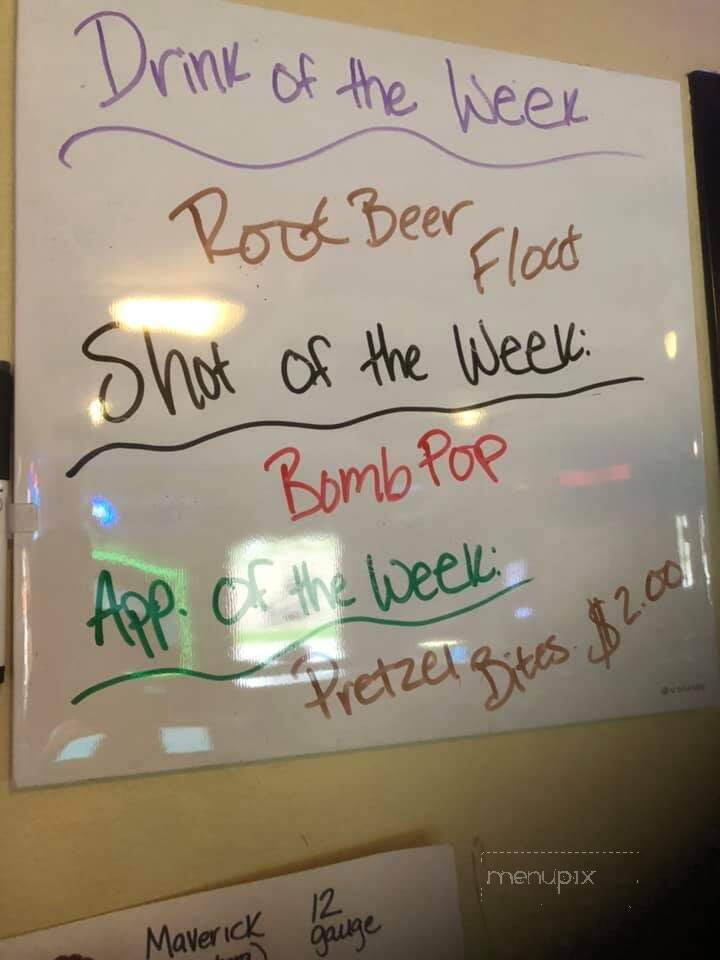 Drink of the Week
Root Beer Float
Shot of the Week:
Bomb Pop
App. of the Week:
Pretzel Bites. $2.00
menupix
Maverick 12 gauge